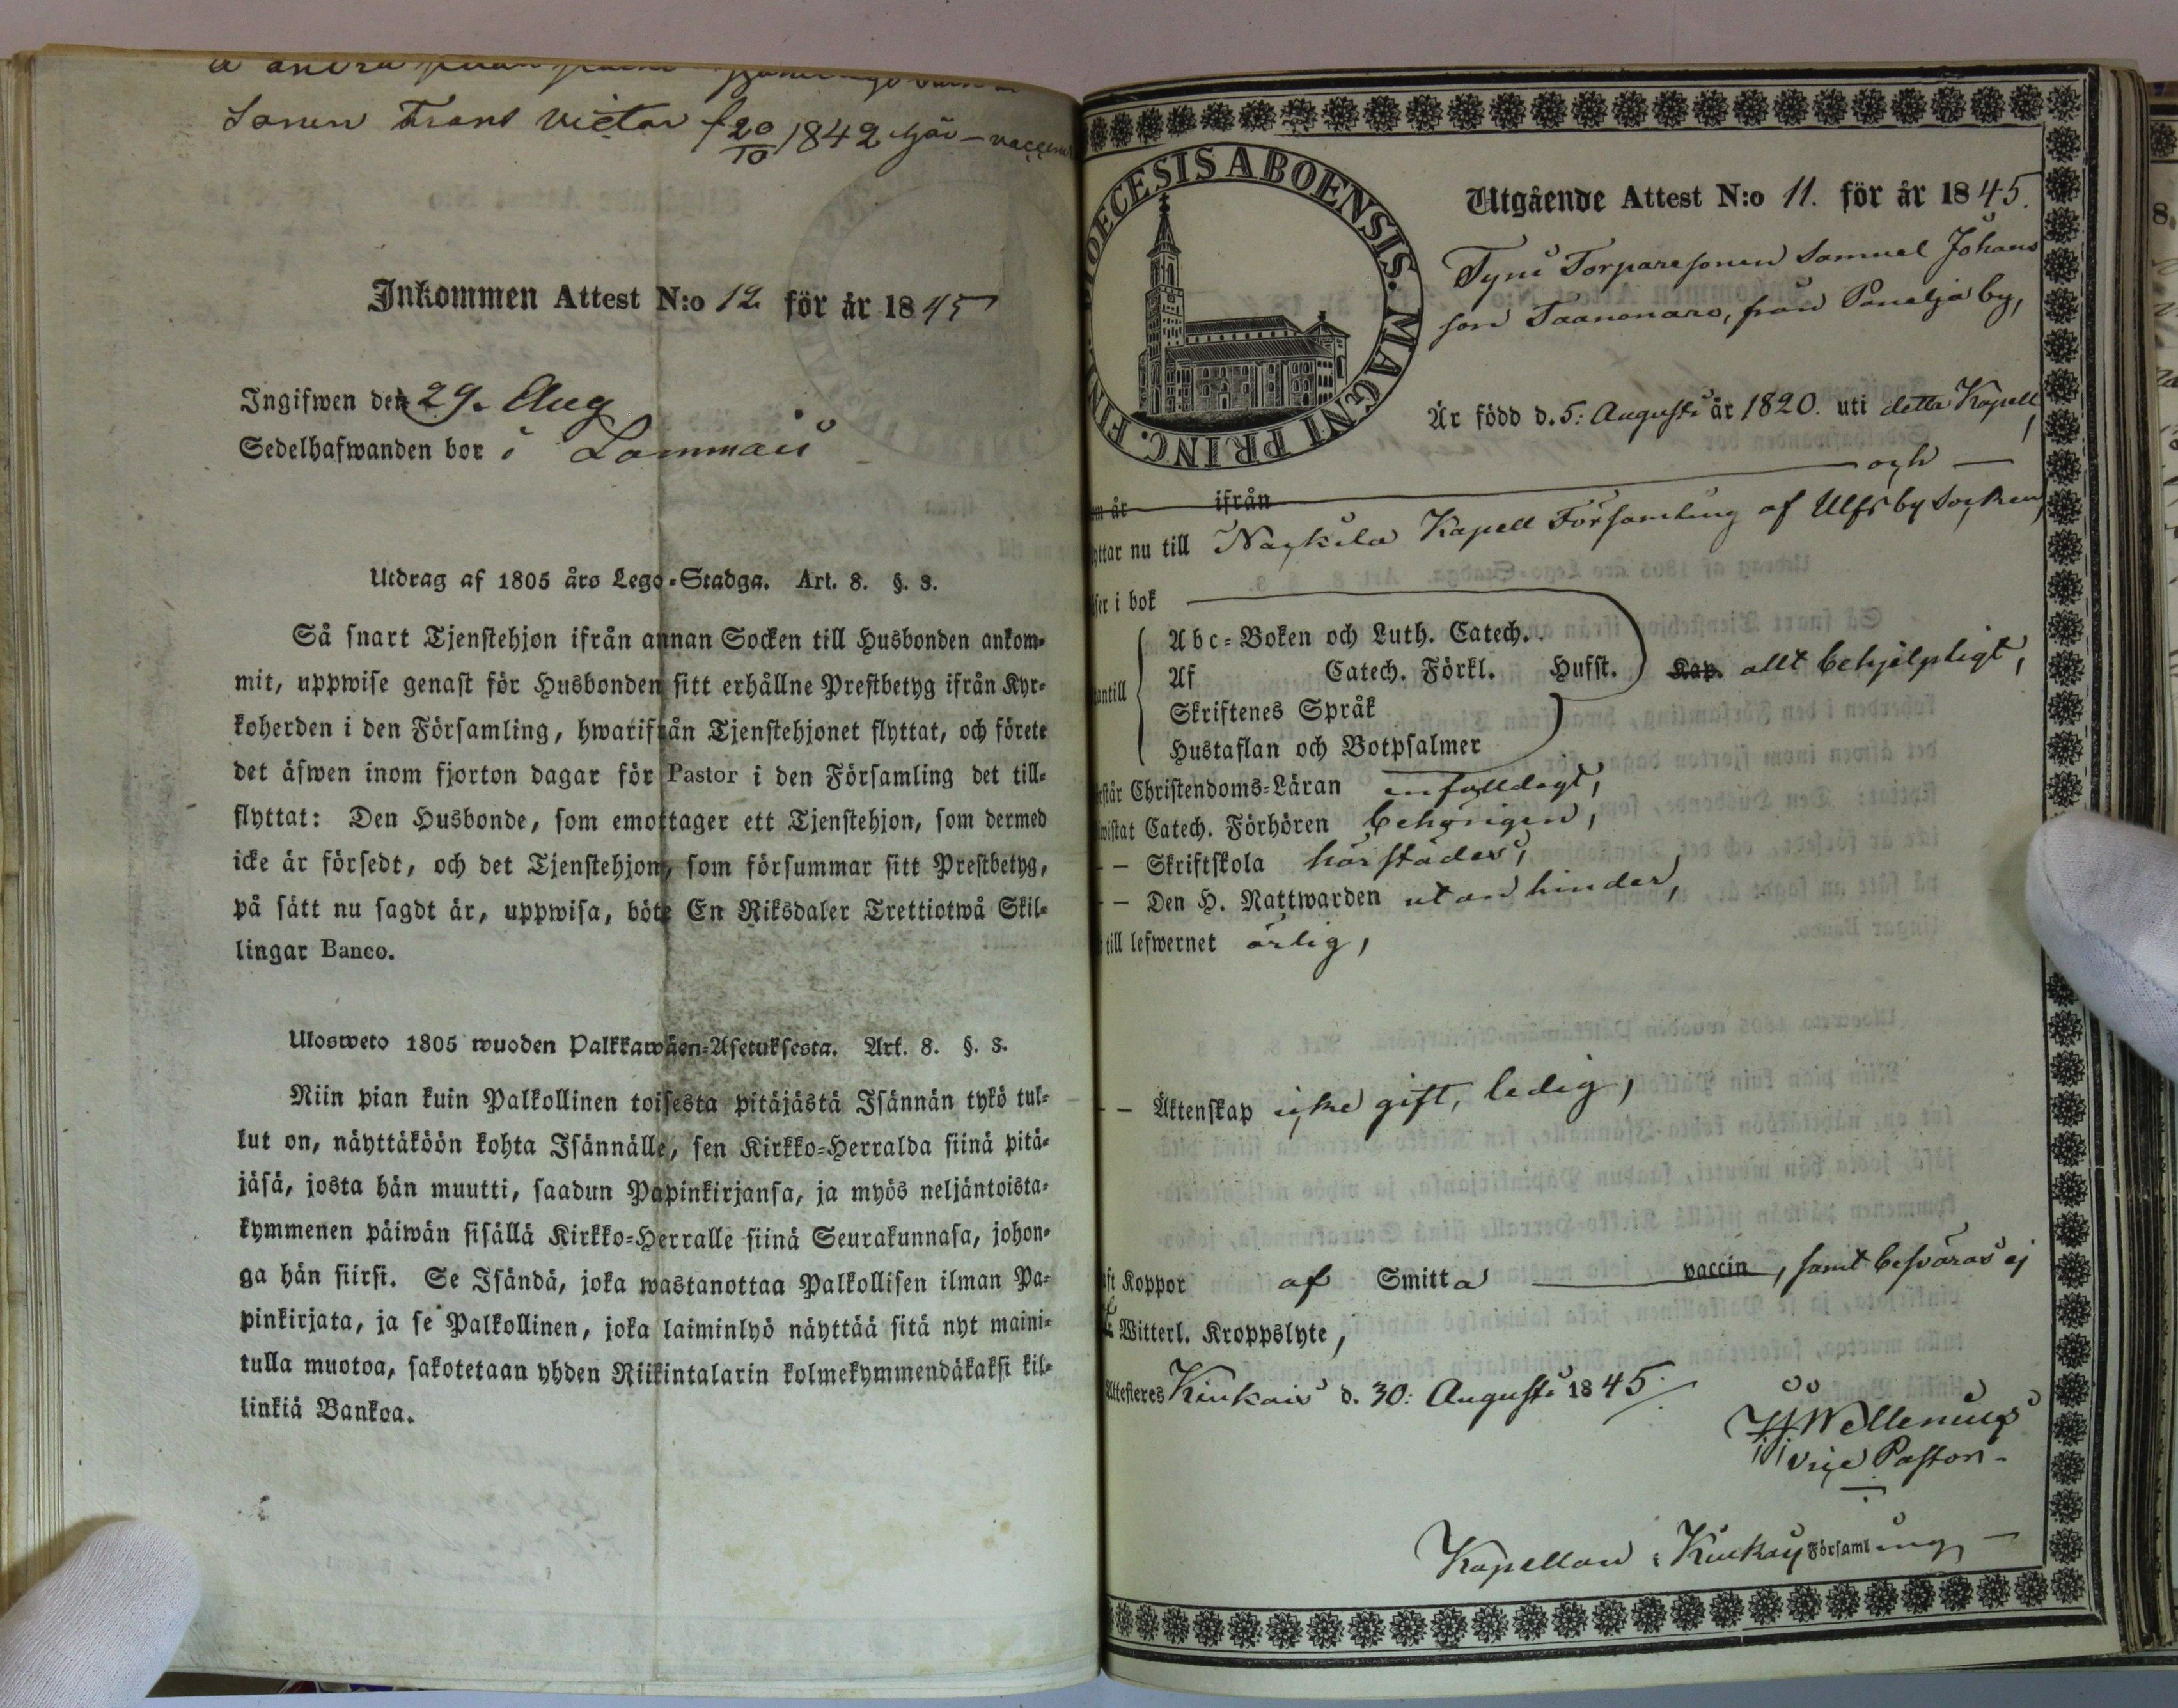 Sonen Frans Victor f 20/10 1842 här – vaccinerad
Inkommen Attest N:o 12 för år 1845
Ingifwen den 29. Aug
Sedelhafwanden bor i Lammais
Utdrag af 1805 års Lego-Stadga. Art. 8. §. 3.
Så snart Tjenstehjon ifrån annan Socken till Husbonden ankom-
mit, uppwise genast för Husbonden sitt erhållne Prestbetyg ifrån Kyr-
koherden i den Församling, hwarifrån Tjenstehjonet flyttat, och förete
det äfwen inom fjorton dagar för Pastor i den Församling det till-
flyttat: Den Husbonde, som emottager ett Tjenstehjon, som dermed
icke är försedt, och det Tjenstehjon, som försummar sitt Prestbetyg,
på sätt nu sagdt är, uppwisa, böte En Riksdaler Trettiotwå Skil-
lingar Banco.
Ulosweto 1805 wuoden Palkkawäen-Asetuksesta. Art. 8. §. 3.
Niin pian kuin Palkollinen toisesta pitäjästä Isännän tykö tul-
lut on, näyttäköön kohta Isännälle, sen Kirkko-Herralda siinä pitä-
jäsä, josta hän muutti, saadun Papinkirjansa, ja myös neljäntoista-
kymmenen päiwän sisällä Kirkko-Herralle siinä Seurakunnasa, johon-
ga hän siirsi. Se Isändä, joka wastanottaa Palkollisen ilman Pa-
pinkirjata, ja se Palkollinen, joka laiminlyö näyttää sitä nyt maini-
tulla muotoa, sakotetaan yhden Riikintalarin kolmekymmendäkaksi kil-
linkiä Bankoa.
DIOECESIS ABOENSIS. MAGNI PRINC. FIN
Utgående Attest N:o 11. för år 1845.
Tyni Torparesonen Samuel Johans
son Taanonaro, från Panelja by,
Är född d. 5: Augusti år 1820. uti detta Kapell,
och
m år ifrån
yttar nu till Nackila Kapell Församling af Ulfsby Socken,
ser i bok
Abc-Boken och Luth. Catech.
Af Catech. Förkl. Hufst. Kap. allt behjelpligt,
antill
Skriftenes Språk
Hustaflan och Botpsalmer
rstår Christendoms-Läran enfalldigt,
wistat Catech. Förhören behörigen,
– – Skriftskola härstädes,
– – Den H. Nattwarden utan hinder,
till lefwernet ärlig,
– – Äktenskap icke gift, ledig,
ft Koppor af Smitta vaccin, samt besväras ej
af Witterl. Kroppslyte,
Attesteres Kiukais d. 30: Augusti 1845.
Wellenius
Vice Pastor.
Kapellan i Kiukais Församling